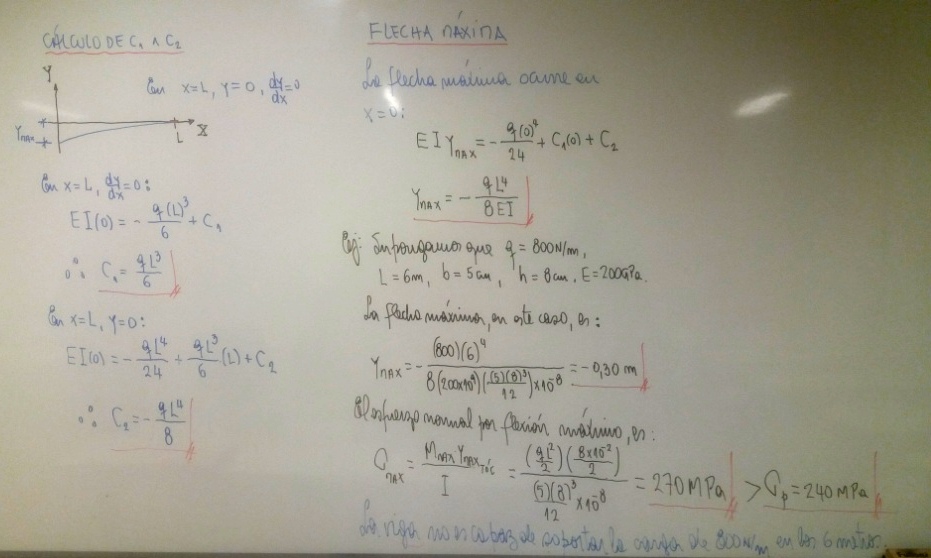 CÁLCULO DE C₁ ∧ C₂
Y
En x=L, y=0, dy/dx=0
Ymax
L
X
En x=L, dy/dx=0:
EI(0) = - q(L)³/6 + C₁
∴ C₁ = qL³/6
En x=L, y=0:
EI(0) = - qL⁴/24 + qL³/6 (L) + C₂
∴ C₂ = - qL⁴/8
FLECHA MÁXIMA
La flecha máxima ocurre en
x=0:
EI Ymax = - q(0)⁴/24 + C₁(0) + C₂
Ymax = - qL⁴/8EI
Ej: Supongamos que q = 800N/m,
L = 6m, b = 5cm, h = 8cm, E = 200GPa.
La flecha máxima, en este caso, es:
Ymax = - (800)(6)⁴/8(200x10⁹)((5)(8)³/12)x10⁻⁸ = -0,30 m
El esfuerzo normal por flexión máximo, es:
σmax = Mmax Ymax/I = (qL²/2)(8x10⁻²/2)/(5)(8)³/12 x10⁻⁸ = 270 MPa > σp = 240 MPa
La viga no es capaz de soportar la carga de 800N/m en los 6 metros.